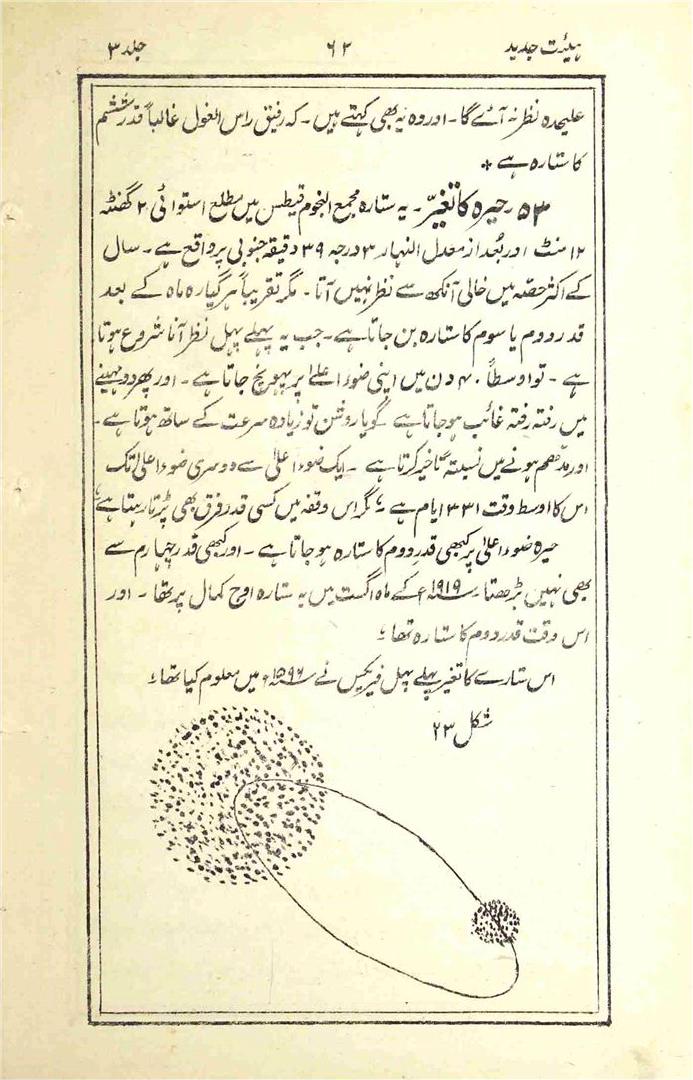 ہیئت جدید ۶۲ جلد ۳
علیحدہ نظر نہ آئے گا۔ اور وہ یہ بھی کہتے ہیں۔ کہ رفیق راس الغول غالباً قدر ششم
کا ستارہ ہے *
۵۳۔ حیرہ کا تغیّر۔ یہ ستارہ مجمع النجوم قیطس میں مطلع استوائی ۲ گھنٹہ
۱۲ منٹ اور بُعد از معدل النہار ۳ درجہ ۳۹ دقیقہ جنوبی پر واقع ہے۔ سال
کے اکثر حصّہ میں خالی آنکھ سے نظر نہیں آتا۔ مگر تقریباً ہر گیارہ ماہ کے بعد
قدر دوم یا سوم کا ستارہ بن جاتا ہے۔ جب یہ پہلے پہل نظر آنا شروع ہوتا
ہے۔ تو اوسطاً ۴۰ دن میں اپنی ضوء اعلیٰ پر پہونچ جاتا ہے۔ اور پھر دو مہینے
میں رفتہ رفتہ غائب ہو جاتا ہے گویا روشن تو زیادہ سرعت کے ساتھ ہوتا ہے۔
اور مدھم ہونے میں نسبتہً تاخیر کرتا ہے۔ ایک ضوء اعلیٰ سے دوسری ضوء اعلیٰ تک
اس کا اوسط وقت ۳۳۱ ایام ہے ؛ مگر اس وقفہ میں کسی قدر فرق بھی پڑتا رہتا ہے ؛
حیرہ ضوء اعلیٰ پر کبھی قدر دوم کا ستارہ ہو جاتا ہے۔ اور کبھی قدر چہارم سے
بھی نہیں بڑھتا۔ ۱۹۱۹ء کے ماہ اگست میں یہ ستارہ اوج کمال پر تھا۔ اور
اس وقت قدر دوم کا ستارہ تھا ؛
اس ستارے کا تغیر پہلے پہل فیبریکیس نے ۱۵۹۶ء میں معلوم کیا تھا ؛
شکل ۲۳